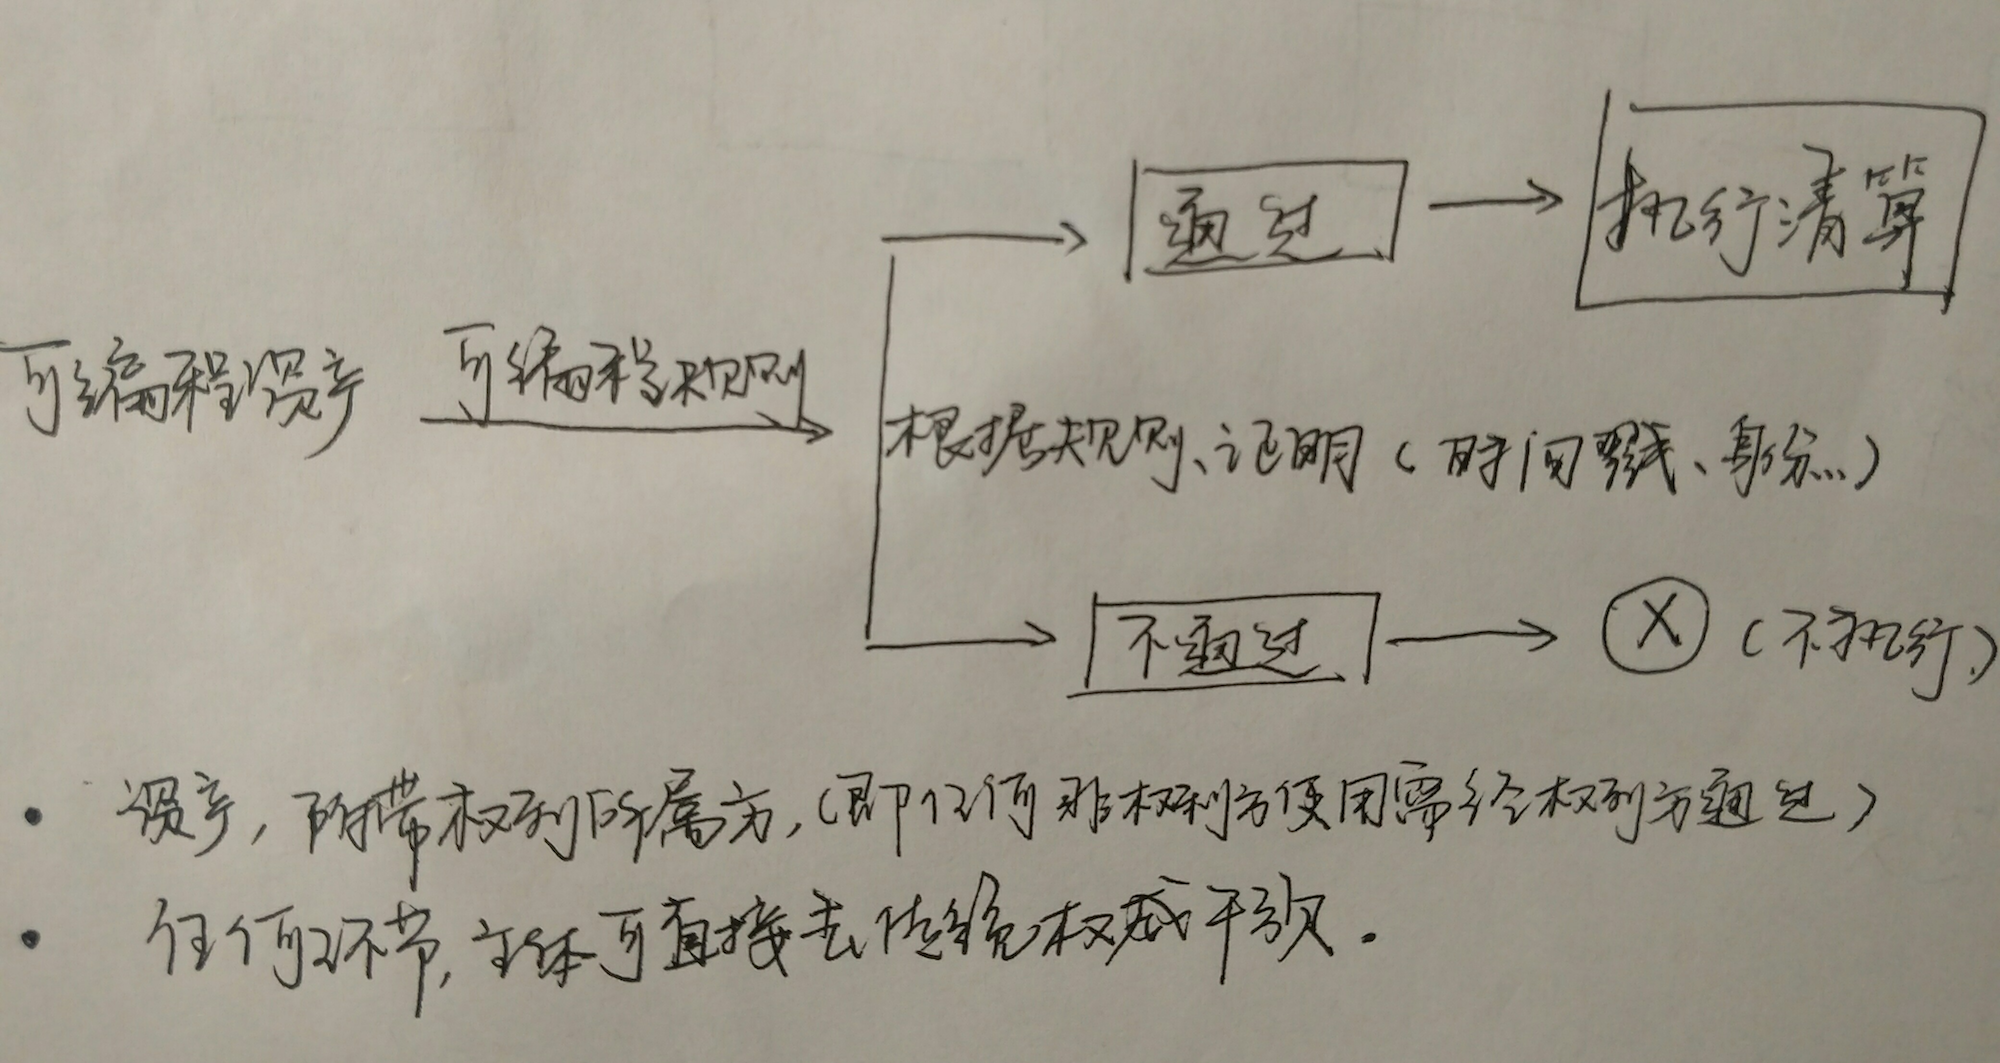 通过
执行清算
可编程资产
可编程规则
根据规则、证明(时间戳、身份...)
不通过
X
(不执行)
• 资产,附带权利所属方,(即任何非权利方使用需经权利方通过)
• 任何环节,主体可直接去传统权威干预.